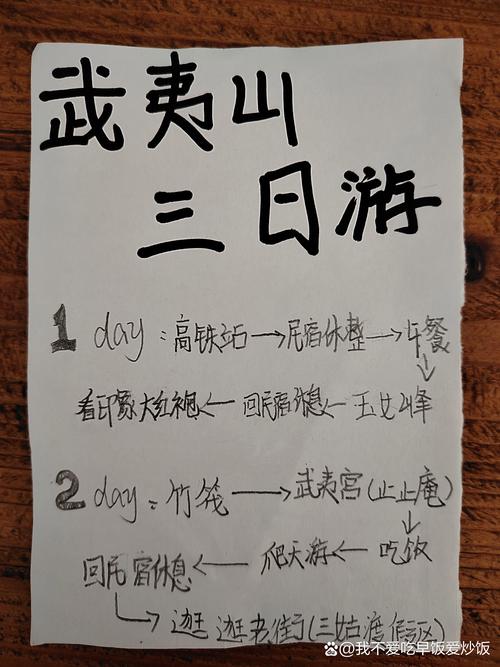 武夷山
三日游
1 day:高铁站→民宿休整→午餐
↓
看印象大红袍←回民宿休息←玉女峰
2 day:竹筏→武夷宫(止止庵)
↓
回民宿休息←爬天游←吃饭
↳逛逛老街(三姑渡假区)
@我不爱吃早饭爱炒饭